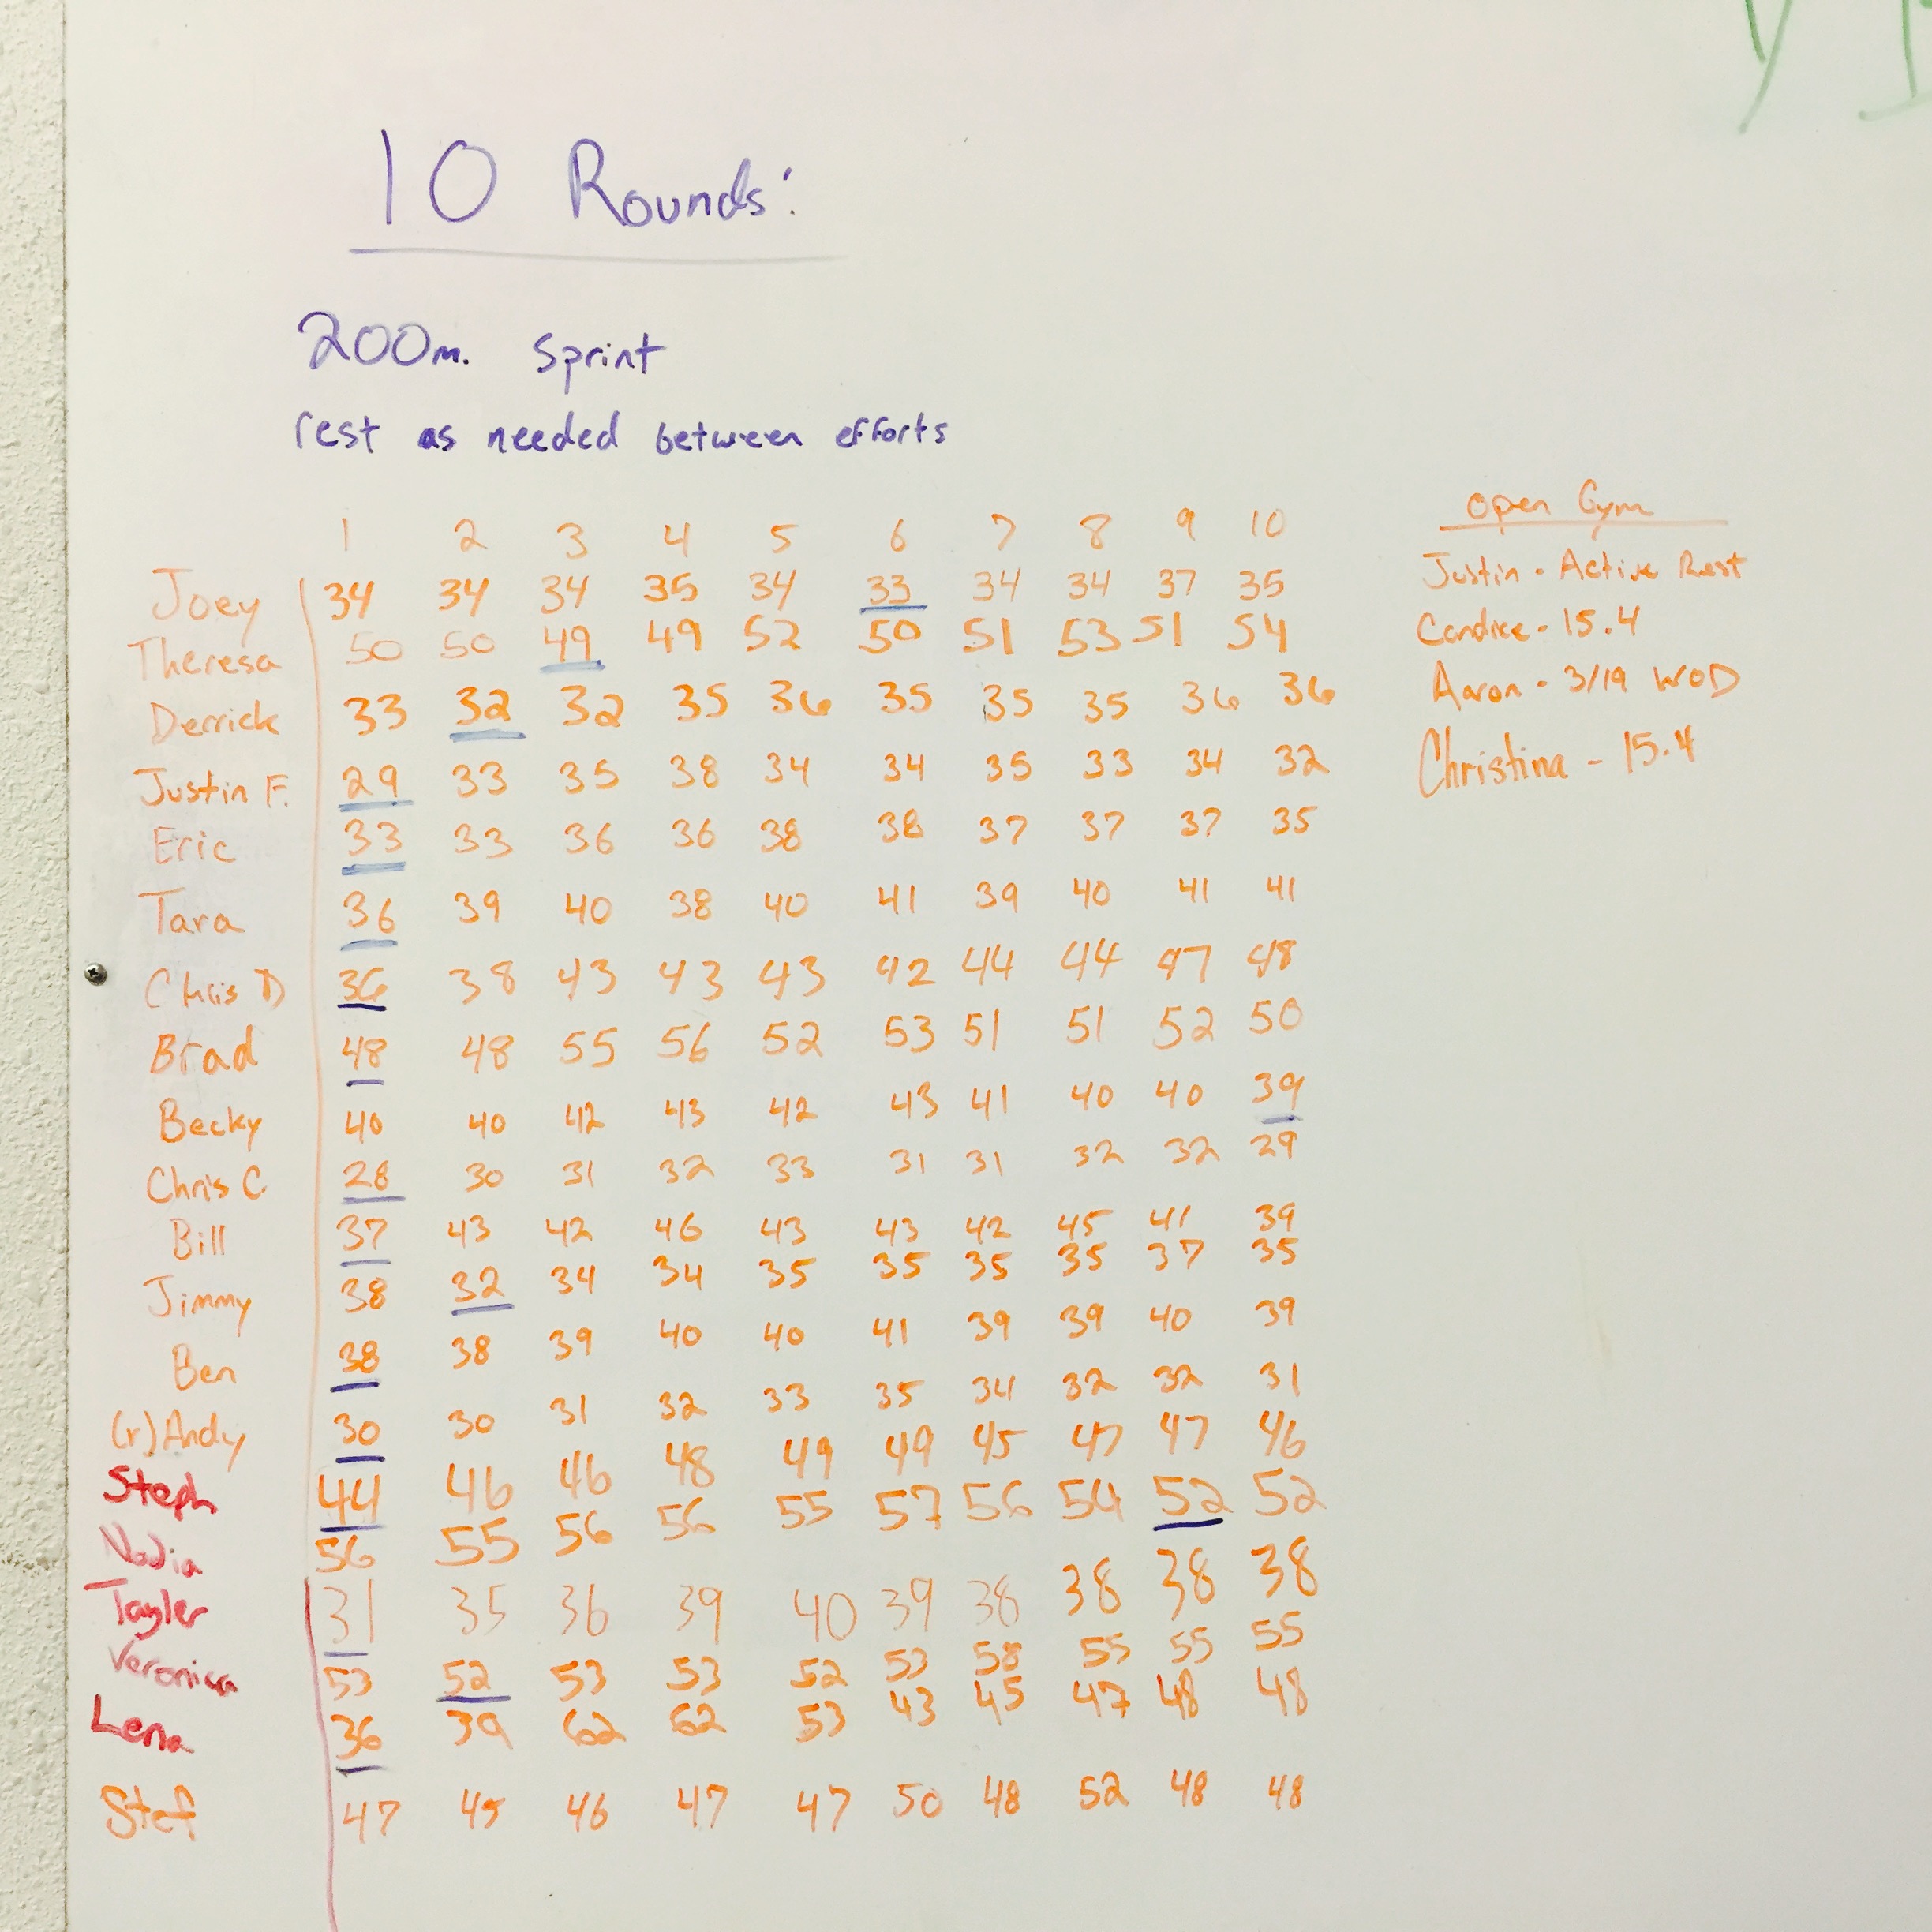 10 Rounds:
200m. Sprint
rest as needed between efforts
1 2 3 4 5 6 7 8 9 10
Joey 34 34 34 35 34 33 34 34 37 35
Theresa 50 50 49 49 52 50 51 53 51 54
Derrick 33 32 32 35 36 35 35 35 36 36
Justin F. 29 33 35 38 34 34 35 33 34 32
Eric 33 33 36 36 38 38 37 37 37 35
Tara 36 39 40 38 40 41 39 40 41 41
Chris D 36 38 43 43 43 42 44 44 47 48
Brad 48 48 55 56 52 53 51 51 52 50
Becky 40 40 42 43 42 43 41 40 40 39
Chris C 28 30 31 32 33 31 31 32 32 29
Bill 37 43 42 46 43 43 42 45 41 39
Jimmy 38 32 34 34 35 35 35 35 37 35
Ben 38 38 39 40 40 41 39 39 40 39
(r) Andy 30 30 31 32 33 35 34 32 32 31
Steph 44 46 46 48 49 49 45 47 47 46
Nadia 56 55 56 56 55 57 56 54 52 52
Tayler 31 35 36 39 40 39 38 38 38 38
Veronica 53 52 53 53 52 53 58 55 55 55
Lena 36 39 62 62 53 43 45 47 48 48
Stef 47 45 46 47 47 50 48 52 48 48
Open Gym
Justin - Active Rest
Candice - 15.4
Aaron - 3/19 WOD
Christina - 15.4